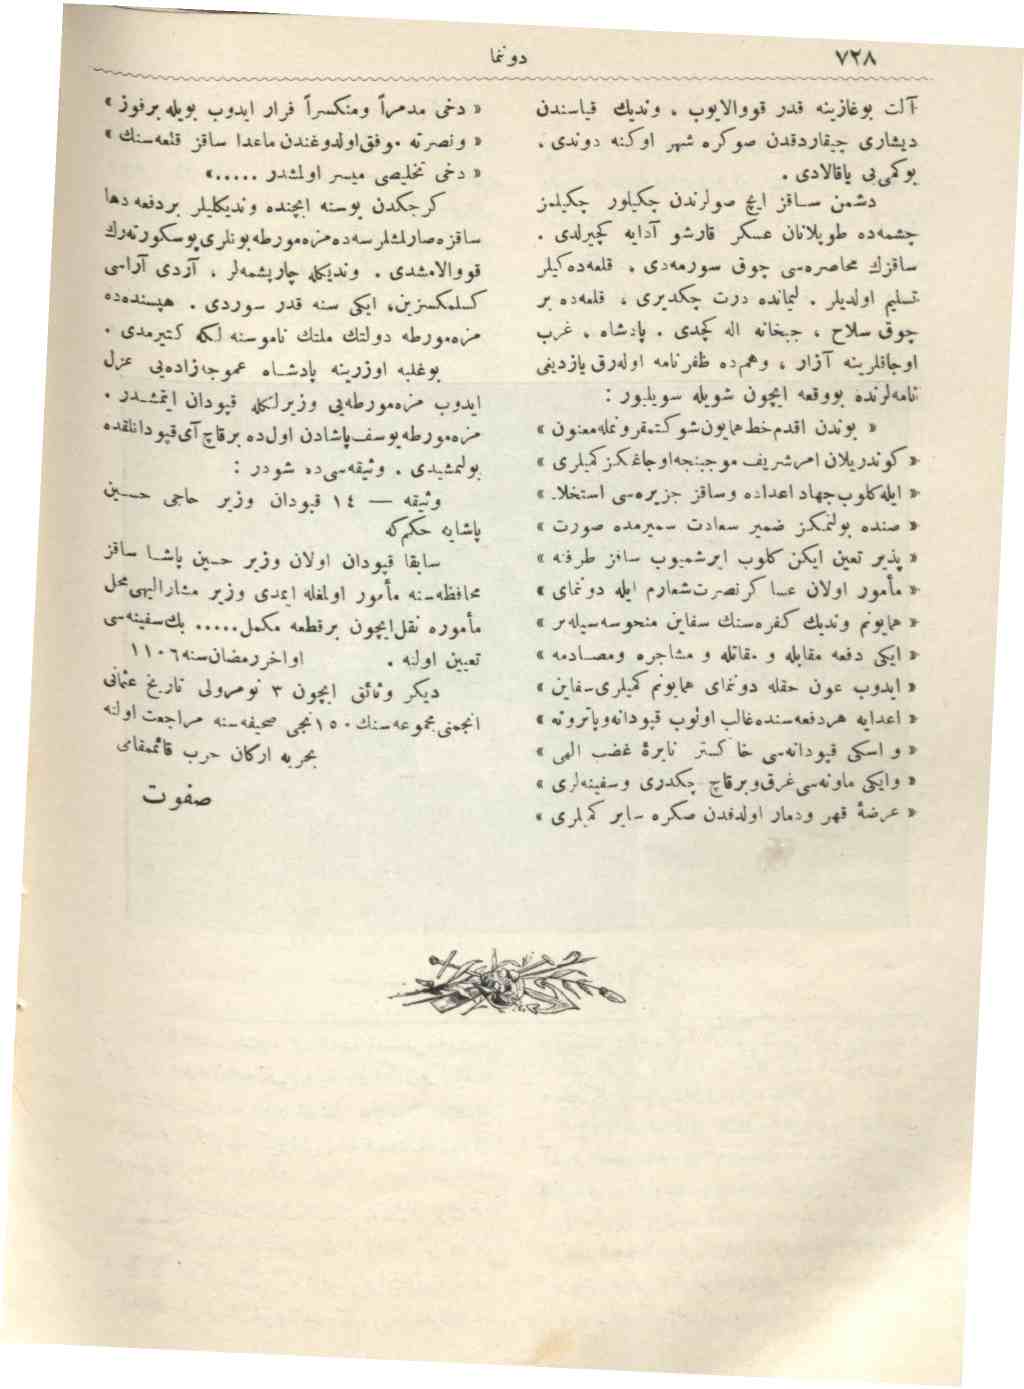 ٧٢٨
دونما
آلت بوغازینه قدر قووالایوب ، وندیك قباسندن
دیشاری چیقاردقدن صوكره شهر اوكنه دوندی .
بوكمی‌یی یاقالادی .
دشمن ساقز ایچ صولرندن چكیلور چكیلمز
چشمه‌ده طوپلانان عسكر قارشو آدایه كچیرلدی .
ساقزك محاصره‌سی چوق سورمه‌دی . قلعه‌ده‌كیلر
تسلیم اولدیلر . لیمانده درت چكدیری ، قلعه‌ده بر
چوق سلاح ، جبخانه اله كچدی . پادشاه ، غرب
اوجاقلرینه آزار ، وهم‌ده ظفرنامه اوله‌رق یازدیغی
نامه‌لرنده بووقعه ایچون شویله سویلیور :
« بوندن اقدم خط همایون شوكتمقرونمله معنون »
« كوندریلان امر شریف موجبنجه اوجاغكز كمیلری »
« ایله كلوب جهاد اعداده وساقز جزیره‌سی استخلا- »
« صنده بولنمكز ضمیر سعادت سمیرمده صورت »
« پذیر تعین ایكن كلوب ایرشمیوب ساقز طرفنه »
« مأمور اولان عساكر نصرت‌شعارم ایله دونمای »
« همایونم وندیك كفره‌سنك سفاین منحوسه‌سیله بر »
« ایكی دفعه مقابله و مقاتله و مشاجره ومصادمه »
« ایدوب عون حقله دونمای همایونم كمیلری سفاین »
« اعدایه هر دفعه‌سنده غالب اولوب قپودانه وپاترونه »
« و اسكی قپودانه‌سی خاكستر نایرهٔ غضب الهی »
« وایكی ماونه‌سی غرق وبرقاچ چكدری وسفینه‌لری »
« عرضهٔ قهر ودمار اولدقدن صكره سایر كمیلری »
« دخی مدمراً ومنكسراً فرار ایدوب بویله برفوز »
« ونصرته موفق اولدوغندن ماعدا ساقز قلعه‌سنك »
« دخی تخلیصی میسر اولمشدر ..... »
كرچكدن بوسنه ایچنده وندیكلیلر بردفعه دها
ساقزه صارلمشلرسه‌ده مزه‌مورطه بونلری پوسكورته‌رك
قووالامشدی . وندیكله چارپیشمه‌لر ، آزدی آراسی
كسلمكسزین، ایكی سنه قدر سوردی . هپسنده‌ده
مزه‌مورطه دولتك ملتك ناموسنه لكه كتیرمدی .
بوغلبه اوزرینه پادشاه عموجه‌زاده‌یی عزل
ایدوب مزه‌مورطه‌یی وزیرلكله قپودان ایتمشدر .
مزه‌مورطه یوسف پاشادن اول‌ده برقاچ آی قپودانلقده
بولنمشیدی . وثیقه‌سی‌ده شودر :
وثیقه — ١٤ قپودان وزیر حاجی حسین
پاشایه حكم كه
سابقا قپودان اولان وزیر حسین پاشا ساقز
محافظه‌سنه مأمور اولمغله ایمدی وزیر مشارالیهی محل
مأموره نقل ایچون برقطعه مكمل ..... بك سفینه‌سی
تعیین اولنه . اواخر رمضان سنه ١١٠٦
دیكر وثائق ایچون ٣ نومرولی تاریخ عثمانی
انجمنی مجموعه‌سنك ١٥٠نجی صحیفه‌سنه مراجعت اولنه
بحریه اركان حرب قائممقامی
صفوت